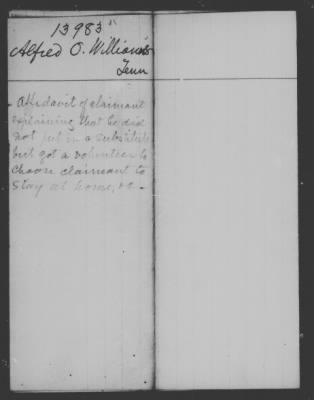 13983
Alfred O. Williams
Tenn
Affidavit of claimant
explaining that he did
not put in a substitute
but got a volunteer to
choose claimant to
stay at home, &c -